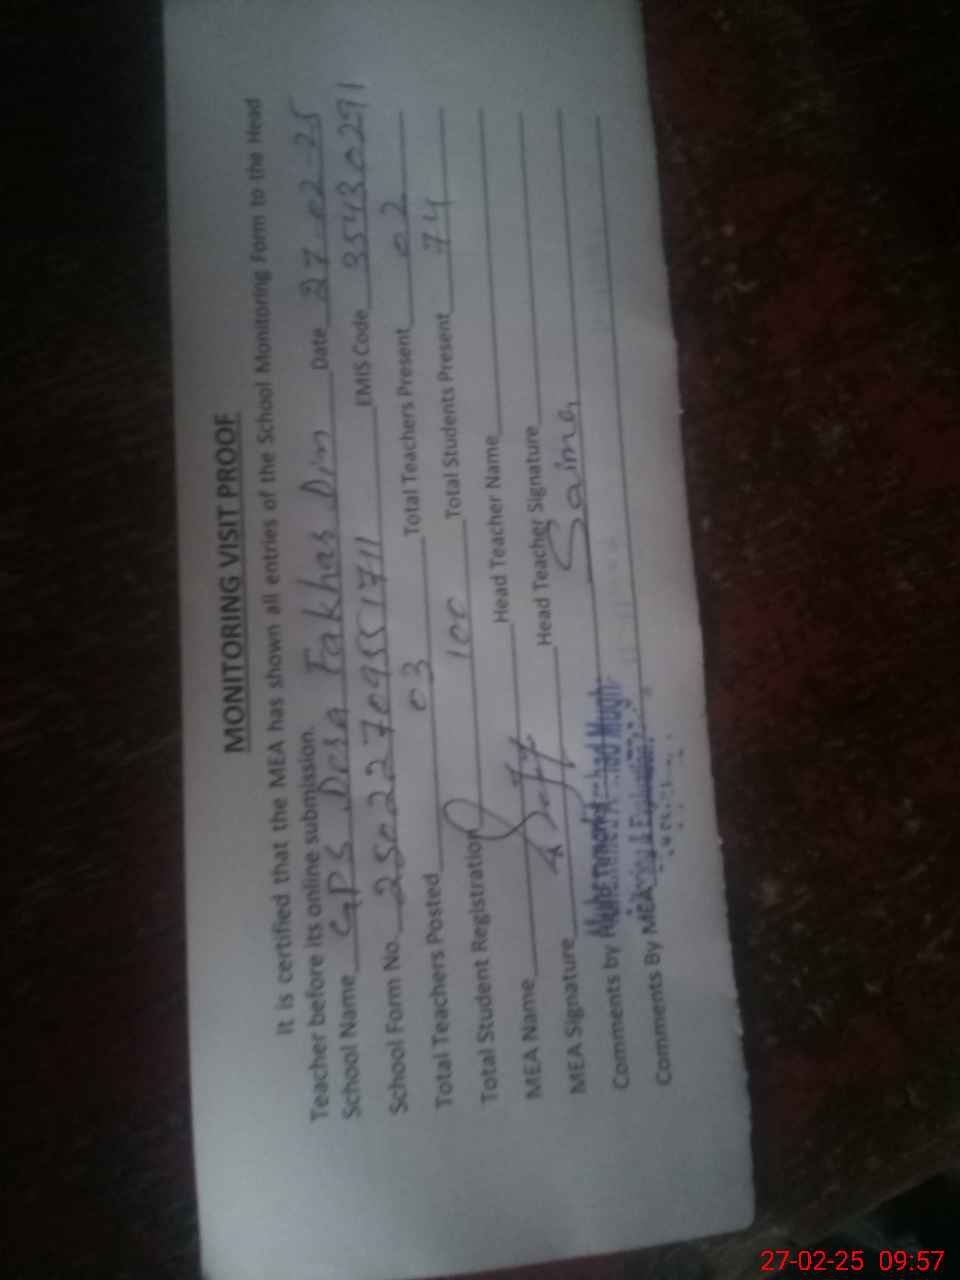 MONITORING VISIT PROOF
It is certified that the MEA has shown all entries of the School Monitoring Form to the Head
Teacher before its online submission.
School Name GPS Dera Fakhar Din Date 27-02-25
School Form No. 25022709551711 EMIS Code 35430291
Total Teachers Posted 03 Total Teachers Present 02
Total Student Registration 100 Total Students Present 74
MEA Name Head Teacher Name
MEA Signature Head Teacher Signature
Saima
Comments by
Comments By MEA
27-02-25 09:57